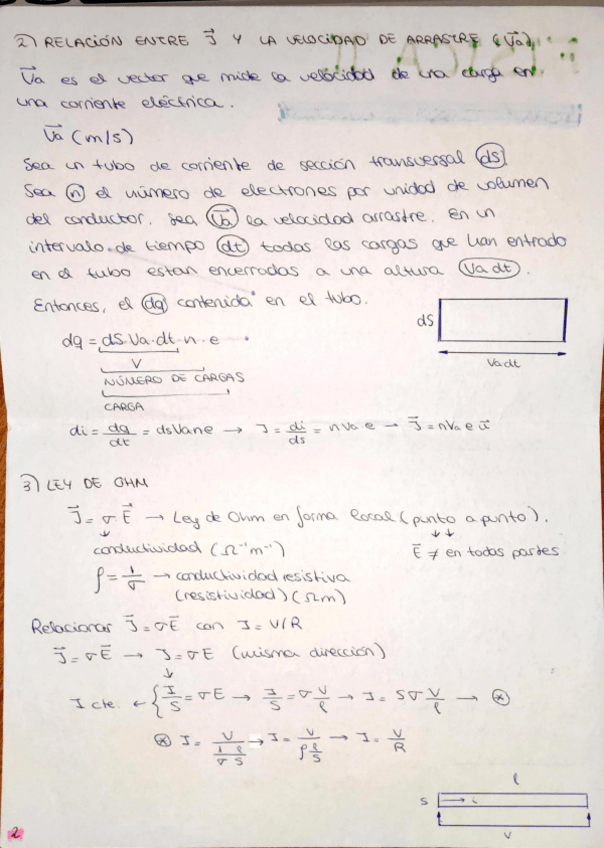 2) RELACIÓN ENTRE J⃗ Y LA VELOCIDAD DE ARRASTRE (V⃗a)
V⃗a es el vector que mide la velocidad de una carga en
una corriente eléctrica.
V⃗a (m/s)
Sea un tubo de corriente de sección transversal dS.
Sea n el número de electrones por unidad de volumen
del conductor. Sea V⃗a la velocidad arrastre. En un
intervalo de tiempo dt todas las cargas que han entrado
en el tubo estan encerradas a una altura Va dt.
Entonces, el dq contenida en el tubo.
dS
Va dt
dq = dS · Va · dt · n · e
V
NÚMERO DE CARGAS
CARGA
di = dq/dt = dsVane → J = di/ds = nVa e → J⃗ = nVa e u⃗
3) LEY DE OHM
J⃗ = σ E⃗ → Ley de Ohm en forma local (punto a punto).
↓ conductividad (Ω⁻¹m⁻¹)
↓↓ E⃗ ≠ en todas partes
ρ = 1/σ → conductividad resistiva
(resistividad) (Ωm)
Relacionar J⃗ = σE⃗ con I = V/R
J⃗ = σE⃗ → J = σE (misma dirección)
↓
I cte. ← { I/S = σE → I/S = σ V/l → I = Sσ V/l → ⊛
⊛ I = V/(1/σ l/S) → I = V/(ρ l/S) → I = V/R
l
S → i
V
2